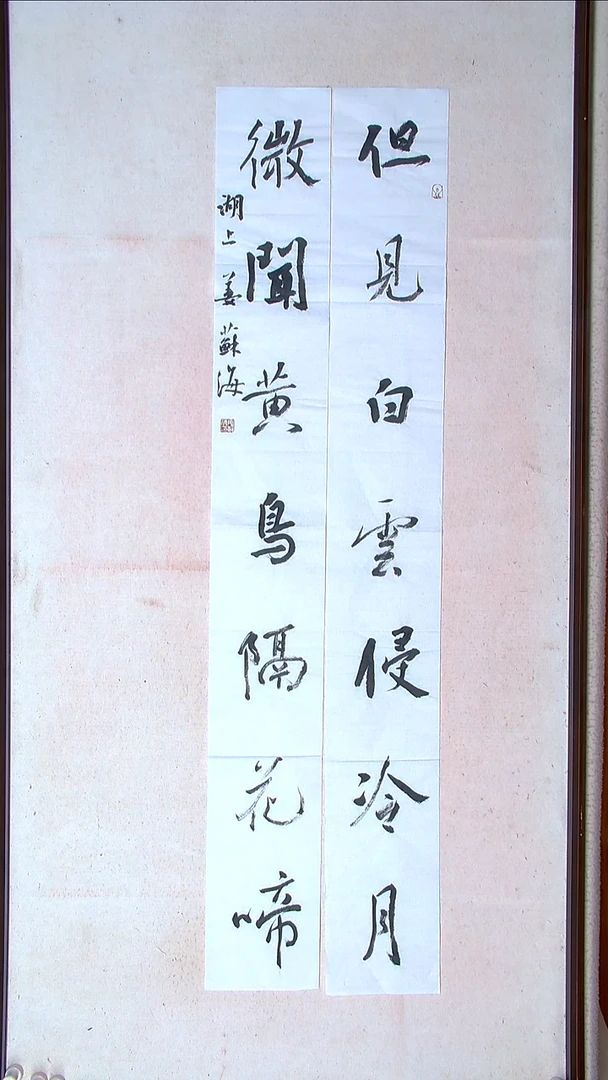 但見白雲侵冷月
微聞黃鳥隔花啼
湖上姜蘇海